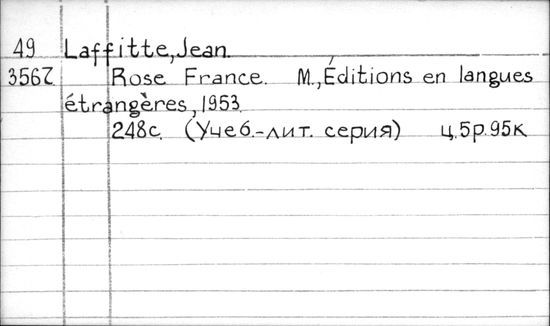 49 Laffitte, Jean.
3567 Rose France. M., Éditions en langues
étrangères, 1953.
248с. (Учеб.-лит. серия) ц.5р.95к